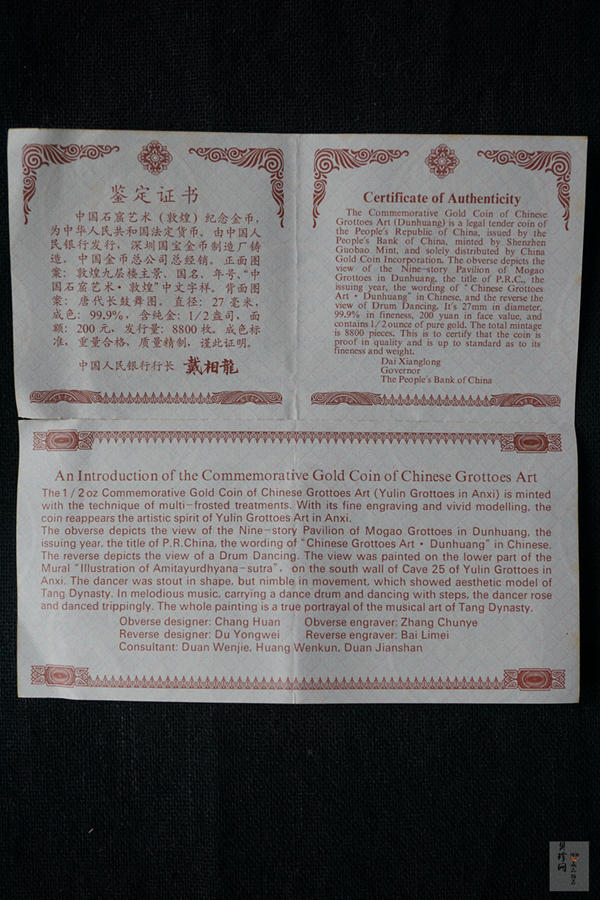 鉴定证书
中国石窟艺术（敦煌）纪念金币，
为中华人民共和国法定货币。由中国人
民银行发行，深圳国宝金币制造厂铸
造，中国金币总公司总经销。正面图
案：敦煌九层楼主景、国名、年号、“中
国石窟艺术·敦煌”中文字样。背面图
案：唐代长鼓舞图。直径：27毫米，
成色：99.9%，含纯金：1/2盎司，面
额：200元，发行量：8800枚。成色标
准，重量合格，质量精制，谨此证明。
中国人民银行行长 戴相龍
Certificate of Authenticity
The Commemorative Gold Coin of Chinese
Grottoes Art (Dunhuang) is a legal tender coin of
the People's Republic of China, issued by the
People's Bank of China, minted by Shenzhen
Guobao Mint, and solely distributed by China
Gold Coin Incorporation. The obverse depicts the
view of the Nine-story Pavilion of Mogao
Grottoes in Dunhuang, the title of P.R.C., the
issuing year, the wording of "Chinese Grottoes
Art · Dunhuang" in Chinese, and the reverse the
view of Drum Dancing. It's 27mm in diameter,
99.9% in fineness, 200 yuan in face value, and
contains 1/2 ounce of pure gold. The total mintage
is 8800 pieces. This is to certify that the coin is
proof in quality and is up to standard as to its
fineness and weight.
Dai Xianglong
Governor
The People's Bank of China
An Introduction of the Commemorative Gold Coin of Chinese Grottoes Art
The 1/2 oz Commemorative Gold Coin of Chinese Grottoes Art (Yulin Grottoes in Anxi) is minted
with the technique of multi-frosted treatments. With its fine engraving and vivid modelling, the
coin reappears the artistic spirit of Yulin Grottoes Art in Anxi.
The obverse depicts the view of the Nine-story Pavilion of Mogao Grottoes in Dunhuang, the
issuing year, the title of P.R.China, the wording of "Chinese Grottoes Art · Dunhuang" in Chinese.
The reverse depicts the view of a Drum Dancing. The view was painted on the lower part of the
Mural "Illustration of Amitayurdhyana-sutra", on the south wall of Cave 25 of Yulin Grottoes in
Anxi. The dancer was stout in shape, but nimble in movement, which showed aesthetic model of
Tang Dynasty. In melodious music, carrying a dance drum and dancing with steps, the dancer rose
and danced trippingly. The whole painting is a true portrayal of the musical art of Tang Dynasty.
Obverse designer: Chang Huan Obverse engraver: Zhang Chunye
Reverse designer: Du Yongwei Reverse engraver: Bai Limei
Consultant: Duan Wenjie, Huang Wenkun, Duan Jianshan